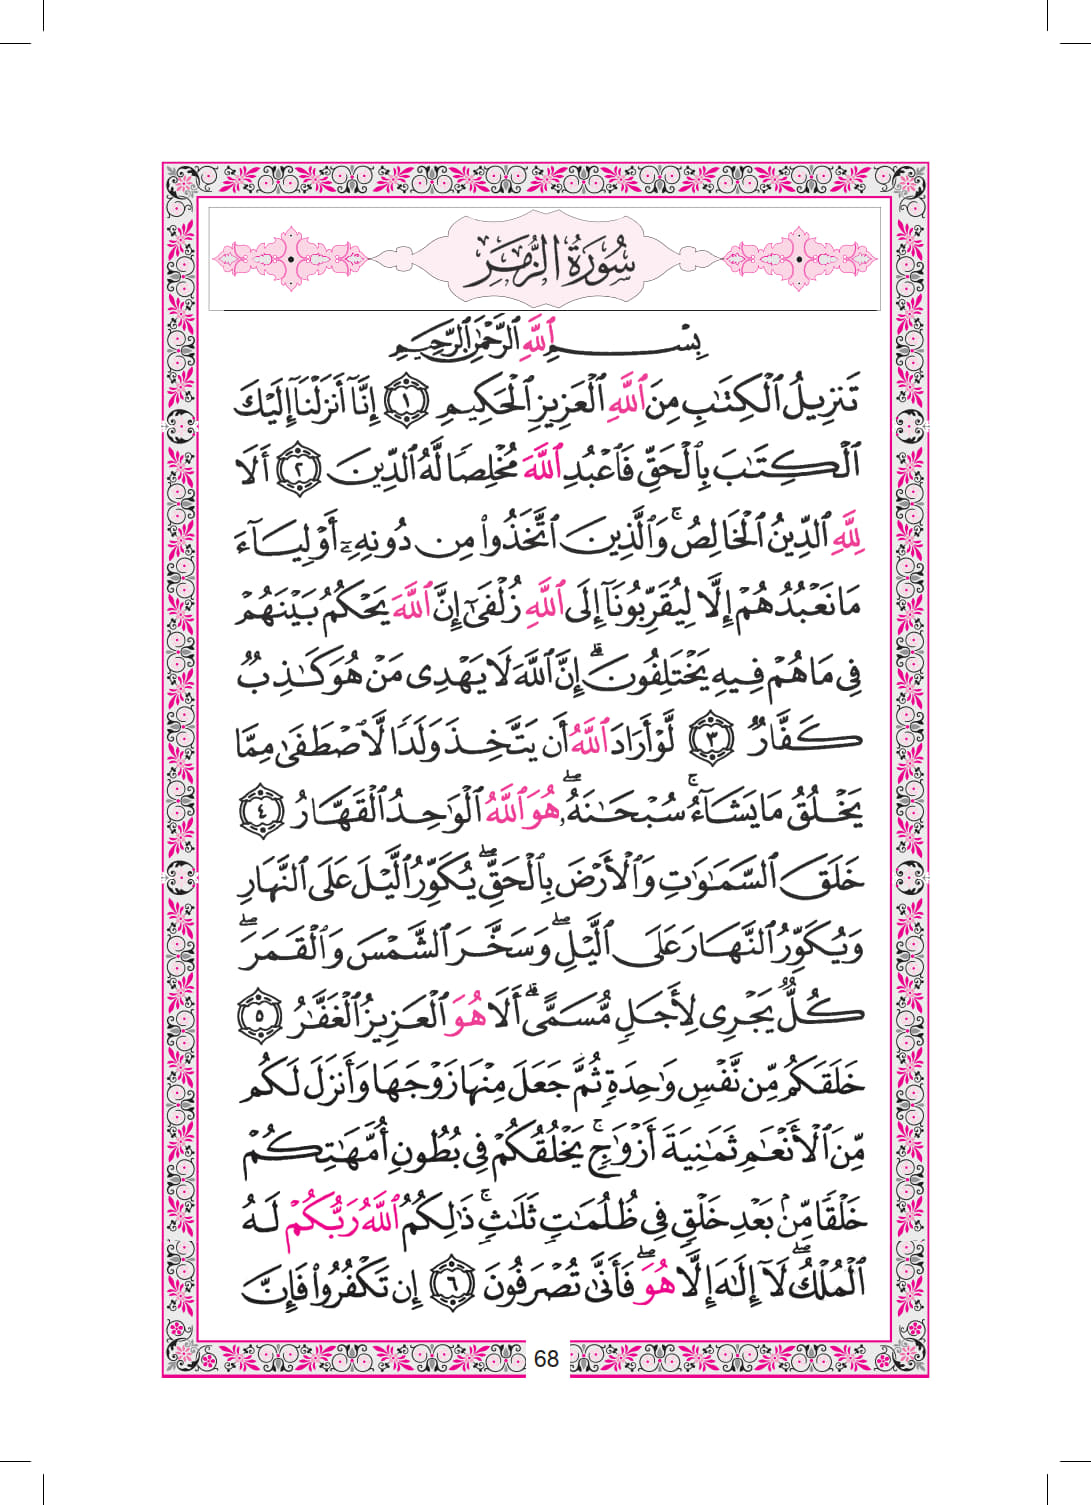 سُورَةُ الزُّمَرِ
بِسْمِ ٱللَّهِ ٱلرَّحْمَٰنِ ٱلرَّحِيمِ
تَنزِيلُ ٱلْكِتَٰبِ مِنَ ٱللَّهِ ٱلْعَزِيزِ ٱلْحَكِيمِ ١ إِنَّآ أَنزَلْنَآ إِلَيْكَ
ٱلْكِتَٰبَ بِٱلْحَقِّ فَٱعْبُدِ ٱللَّهَ مُخْلِصًا لَّهُ ٱلدِّينَ ٢ أَلَا
لِلَّهِ ٱلدِّينُ ٱلْخَالِصُ ۚ وَٱلَّذِينَ ٱتَّخَذُوا۟ مِن دُونِهِۦٓ أَوْلِيَآءَ
مَا نَعْبُدُهُمْ إِلَّا لِيُقَرِّبُونَآ إِلَى ٱللَّهِ زُلْفَىٰٓ إِنَّ ٱللَّهَ يَحْكُمُ بَيْنَهُمْ
فِى مَا هُمْ فِيهِ يَخْتَلِفُونَ ۗ إِنَّ ٱللَّهَ لَا يَهْدِى مَنْ هُوَ كَٰذِبٌ
كَفَّارٌ ٣ لَّوْ أَرَادَ ٱللَّهُ أَن يَتَّخِذَ وَلَدًا لَّٱصْطَفَىٰ مِمَّا
يَخْلُقُ مَا يَشَآءُ ۚ سُبْحَٰنَهُۥ ۖ هُوَ ٱللَّهُ ٱلْوَٰحِدُ ٱلْقَهَّارُ ٤
خَلَقَ ٱلسَّمَٰوَٰتِ وَٱلْأَرْضَ بِٱلْحَقِّ ۖ يُكَوِّرُ ٱلَّيْلَ عَلَى ٱلنَّهَارِ
وَيُكَوِّرُ ٱلنَّهَارَ عَلَى ٱلَّيْلِ ۖ وَسَخَّرَ ٱلشَّمْسَ وَٱلْقَمَرَ ۖ
كُلٌّ يَجْرِى لِأَجَلٍ مُّسَمًّى ۗ أَلَا هُوَ ٱلْعَزِيزُ ٱلْغَفَّٰرُ ٥
خَلَقَكُم مِّن نَّفْسٍ وَٰحِدَةٍ ثُمَّ جَعَلَ مِنْهَا زَوْجَهَا وَأَنزَلَ لَكُم
مِّنَ ٱلْأَنْعَٰمِ ثَمَٰنِيَةَ أَزْوَٰجٍ ۚ يَخْلُقُكُمْ فِى بُطُونِ أُمَّهَٰتِكُمْ
خَلْقًا مِّنۢ بَعْدِ خَلْقٍ فِى ظُلُمَٰتٍ ثَلَٰثٍ ۚ ذَٰلِكُمُ ٱللَّهُ رَبُّكُمْ لَهُ
ٱلْمُلْكُ ۖ لَآ إِلَٰهَ إِلَّا هُوَ ۖ فَأَنَّىٰ تُصْرَفُونَ ٦ إِن تَكْفُرُوا۟ فَإِنَّ
68